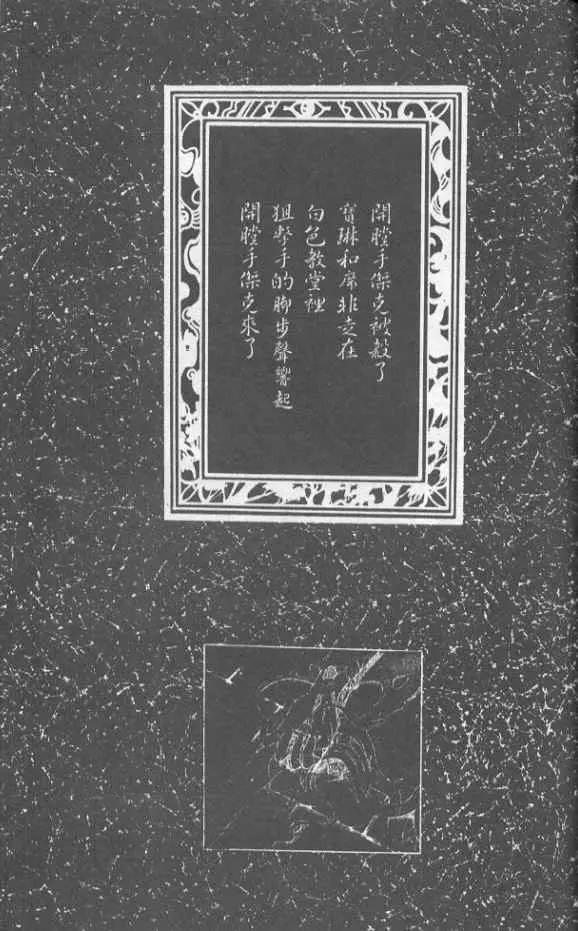 開膛手傑克被殺了
寶琳和席非走在
白色教堂裡
狙擊手的腳步聲響起
開膛手傑克來了